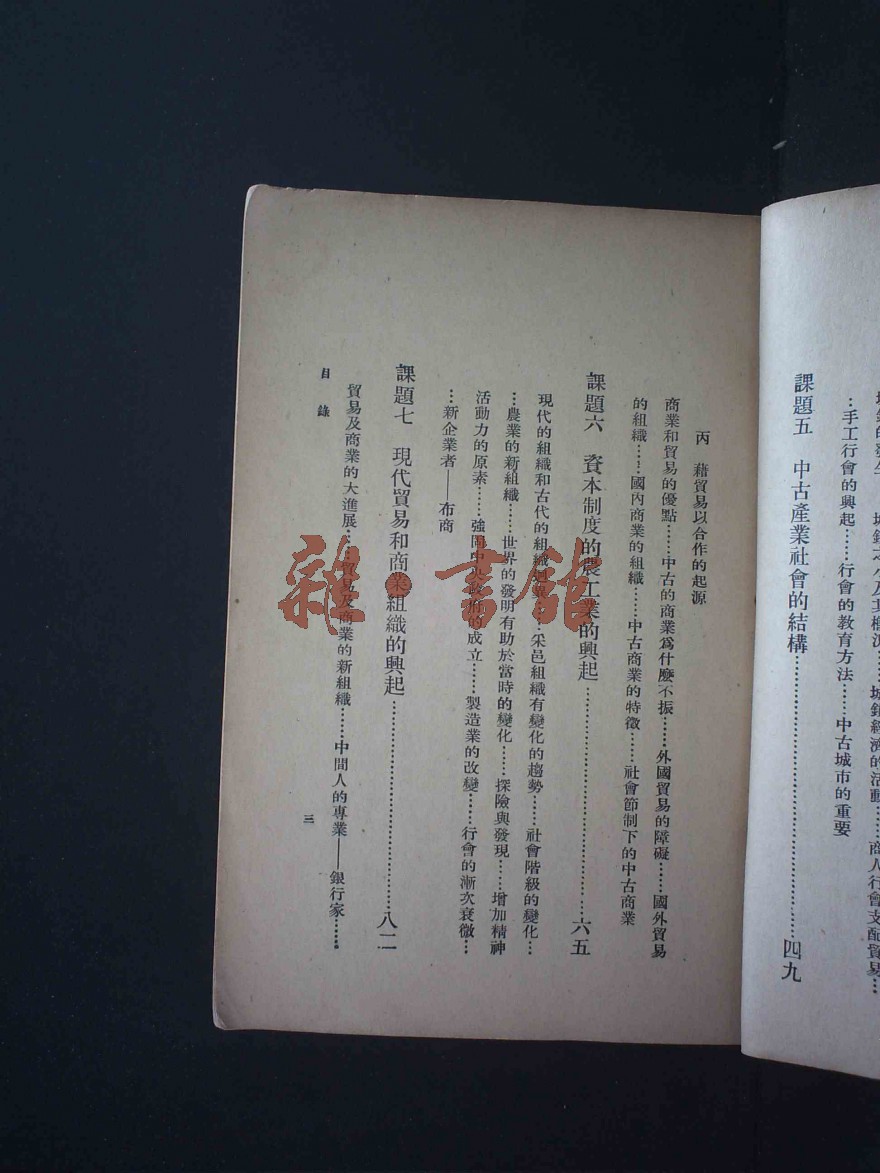 城鎮經濟的活動……商人行會支配貿易…
…手工行會的興起……行會的教育方法……中古城市的重要
課題五 中古產業社會的結構……四九
丙 藉貿易以合作的起源
商業和貿易的優點……中古的商業爲什麼不振……外國貿易的障礙……國外貿易
的組織……國內商業的組織……中古商業的特徵……社會節制下的中古商業
課題六 資本制度的農工業的興起……六五
現代的組織和古代的組織迥異……采邑組織有變化的趨勢……社會階級的變化…
…農業的新組織……世界的發明有助於當時的變化……探險與發現……增加精神
活動力的原素……強固中央政府的成立……製造業的改變……行會的漸次衰微…
…新企業者——布商
課題七 現代貿易和商業組織的興起……八二
貿易及商業的大進展……貿易及商業的新組織……中間人的專業——銀行家……
目錄
三
雜·書館